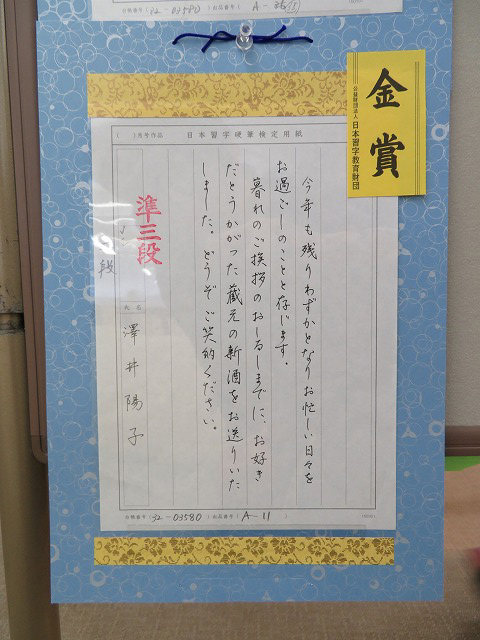 台帳番号(32-03580)出品番号(A-
金賞
公益財団法人 日本習字教育財団
( )月号作品 日本習字硬筆検定用紙
今年も残りわずかとなりお忙しい日々を
お過ごしのことと存じます。
暮れのご挨拶のおしるしまでに、お好き
だとうかがった蔵元の新酒をお送りいた
しました。どうぞご笑納ください。
準三段
段
氏名 澤井陽子
台帳番号(32-03580)出品番号(A-11)